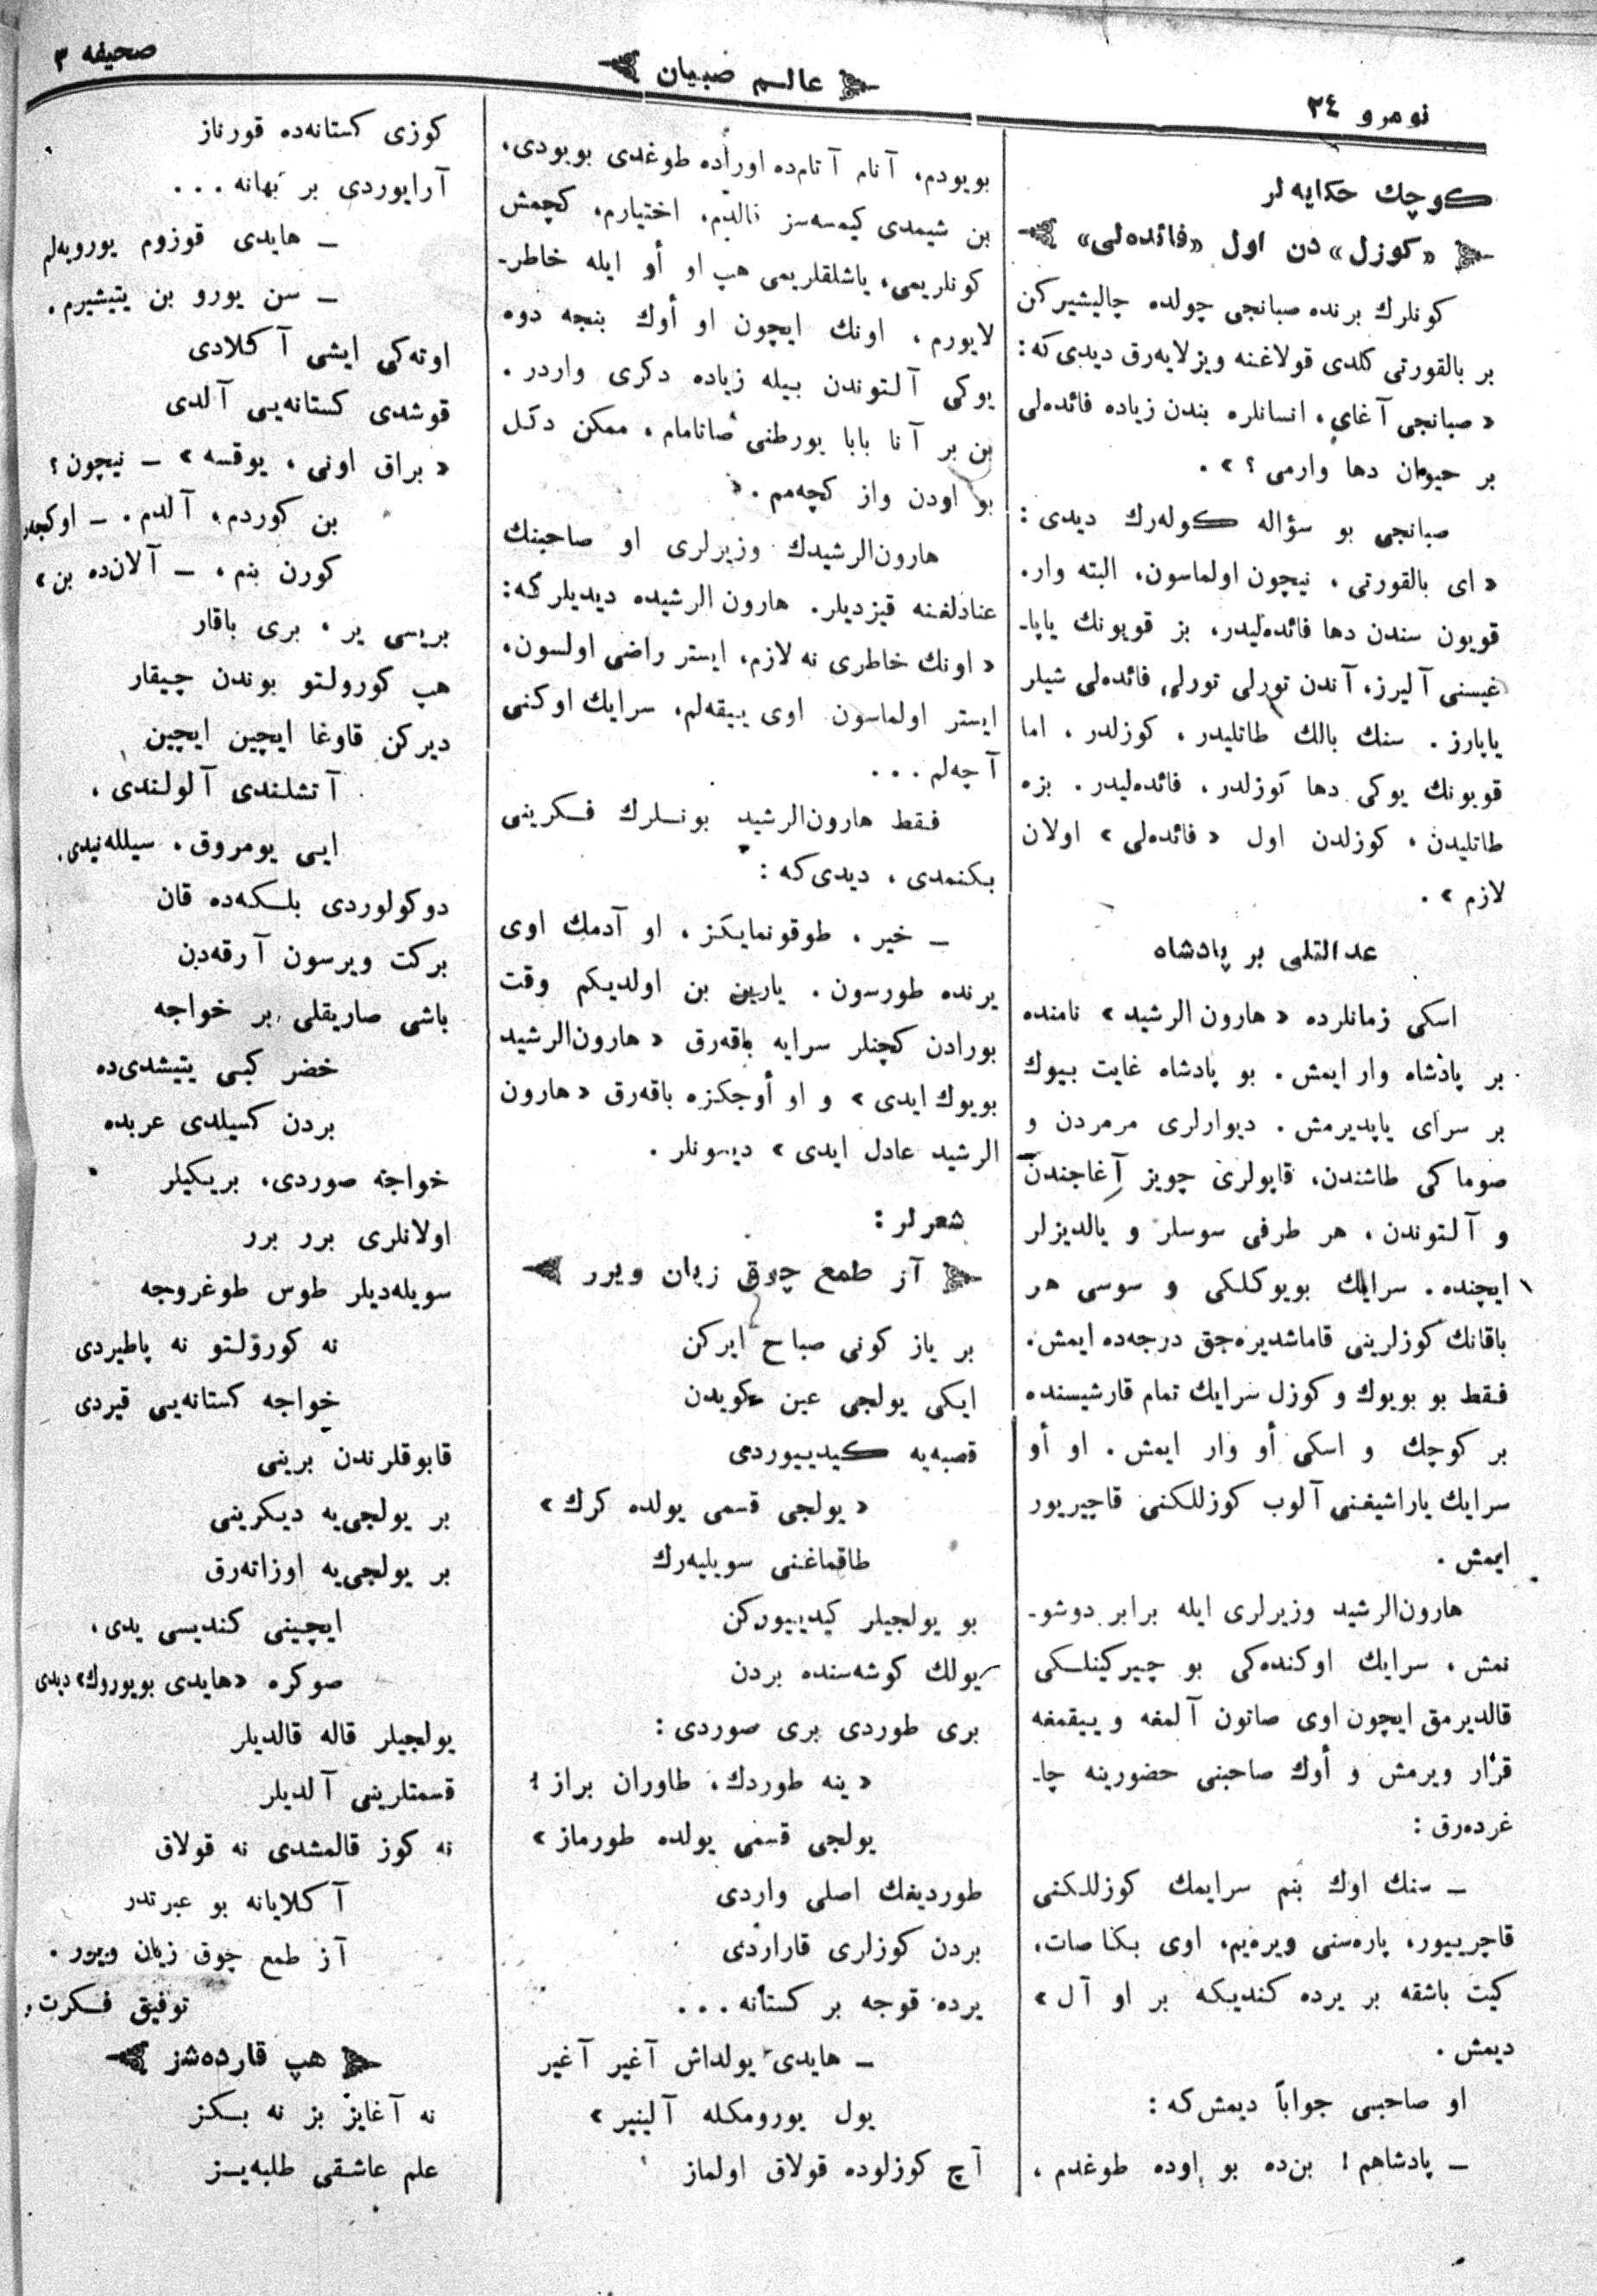 نومرو ٢٤
عالم صبیان
صحیفه ٣
كوچك حكایه‌لر
«كوزل» دن اول «فائده‌لی»
كونلرك برنده صبانجی چولده چالیشیركن
بر بالقورتی كلدی قولاغنه ویزلایه‌رق دیدی كه:
« صبانجی آغای، انسانلره بندن زیاده فائده‌لی
بر حیوان دها وارمی ؟ » .
صبانجی بو سؤاله كوله‌رك دیدی :
« ای بالقورتی ، نیچون اولماسون، البته وار.
قویون سندن دها فائده‌لیدر، بز قویونك یاپا-
غیسنی آلیرز، آندن تورلی تورلی فائده‌لی شیلر
یاپارز . سنك بالك طاتلیدر ، كوزلدر ، اما
قویونك یوكی دها كوزلدر ، فائده‌لیدر . بزه
طاتلیدن ، كوزلدن اول « فائده‌لی » اولان
لازم » .
عدالتلی بر پادشاه
اسكی زمانلرده « هارون الرشید » نامنده
بر پادشاه وار ایمش . بو پادشاه غایت بیوك
بر سرای یاپدیرمش . دیوارلری مرمردن و
صوماكی طاشندن، قاپولری جویز آغاجندن
و آلتوندن ، هر طرفی سوسلر و یالدیزلر
ایچنده . سرایك بویوكلكی و سوسی هر
باقانك كوزلرینی قاماشدیره‌جق درجه‌ده ایمش.
فقط بو بویوك و كوزل سرایك تمام قارشیسنده
بر كوچك و اسكی أو وار ایمش . او أو
سرایك یاراشیغنی آلوب كوزللكنی قاچیریور
ایمش .
هارون‌الرشید وزیرلری ایله برابر دوشو-
نمش ، سرایك اوكنده‌كی بو چیركینلكی
قالدیرمق ایچون اوی صاتون آلمغه و ییقمغه
قرار ویرمش و أوك صاحبنی حضورینه چا-
غرده‌رق :
ـ سنك اوك بنم سرایمك كوزللكنی
قاچرییور، پاره‌سنی ویره‌یم، اوی بكا صات،
كیت باشقه بر یرده كندیكه بر او آل »
دیمش .
او صاحبی جواباً دیمش كه :
ـ پادشاهم ! بن‌ده بو اوده طوغدم ،
بویودم، آنام آتام‌ده اوراده طوغدی بویودی،
بن شیمدی كیمسه‌سز قالدیم، اختیارم، كچمش
كونلریمی، یاشلقلریمی هپ او أو ایله خاطر-
لایورم ، اونك ایچون او أوك بنجه دوه
یوكی آلتوندن بیله زیاده دكری واردر .
بن بر آنا بابا یورطنی صاتامام ، ممكن دكل
بو اودن واز كچه‌مم . »
هارون‌الرشیدك وزیرلری او صاحبنك
عنادلغنه قیزدیلر. هارون الرشیده دیدیلر كه:
« اونك خاطری نه لازم، ایستر راضی اولسون،
ایستر اولماسون اوی ییقه‌لم، سرایك اوكنی
آچه‌لم ...
فقط هارون‌الرشید بونلرك فكرینی
بكنمدی ، دیدی كه :
ـ خیر ، طوقونمایكز ، او آدمك اوی
یرنده طورسون . یارین بن اولدیكم وقت
بورادن كچنلر سرایه باقه‌رق « هارون‌الرشید
بویوك ایدی » و او أوجكزه باقه‌رق « هارون
الرشید عادل ایدی » دیسونلر .
شعرلر :
آز طمع چوق زیان ویرر
بر یاز كونی صباح ایركن
ایكی یولجی عین كویدن
قصبه‌یه كیدییوردی
« یولجی قسمی یولده كرك »
طاقماغنی سویلیه‌رك
بو یولجیلر كیدییوركن
یولك كوشه‌سنده بردن
بری طوردی بری صوردی :
« ینه طوردك، طاوران براز !
یولجی قسمی یولده طورماز »
طوردیغك اصلی واردی
بردن كوزلری قاراردی
یرده قوجه بر كستانه ...
ـ هایدی یولداش آغیر آغیر
یول یورومكله آلینیر »
آچ كوزلوده قولاق اولماز
كوزی كستانه‌ده قورناز
آرایوردی بر بهانه ...
ـ هایدی قوزوم یورویه‌لم
ـ سن یورو بن یتیشیرم .
اوته‌كی ایشی آكلادی
قوشدی كستانه‌یی آلدی
« براق اونی ، یوقسه » ـ نیچون ؟
بن كوردم، آلدم . ـ اوكجه
كورن بنم ، ـ آلان‌ده بن »
بریسی یر ، بری باقار
هپ كورولتو بوندن چیقار
دیركن قاوغا ایچین ایچین
آتشلندی آلولندی ،
ایی یومروق ، سیلله‌نیدی.
دوكولوردی بلكه‌ده قان
بركت ویرسون آرقه‌دن
باشی صاریقلی بر خواجه
خضر كبی یتیشدی‌ده
بردن كسیلدی عربده
خواجه صوردی، بریكیلر
اولانلری برر برر
سویله‌دیلر طوس طوغروجه
نه كورولتو نه پاطیردی
خواجه كستانه‌یی قیردی
قابوقلرندن برینی
بر یولجی‌یه دیكرینی
بر یولجی‌یه اوزاته‌رق
ایچینی كندیسی یدی ،
صوكره «هایدی بویوروك» دیدی
یولجیلر قاله قالدیلر
قسمتلرینی آلدیلر
نه كوز قالمشدی نه قولاق
آكلایانه بو عبرتدر
آز طمع چوق زیان ویرر .
توفیق فكرت
هپ قارده‌شز
نه آغایز بز نه بكز
علم عاشقی طلبه‌یز